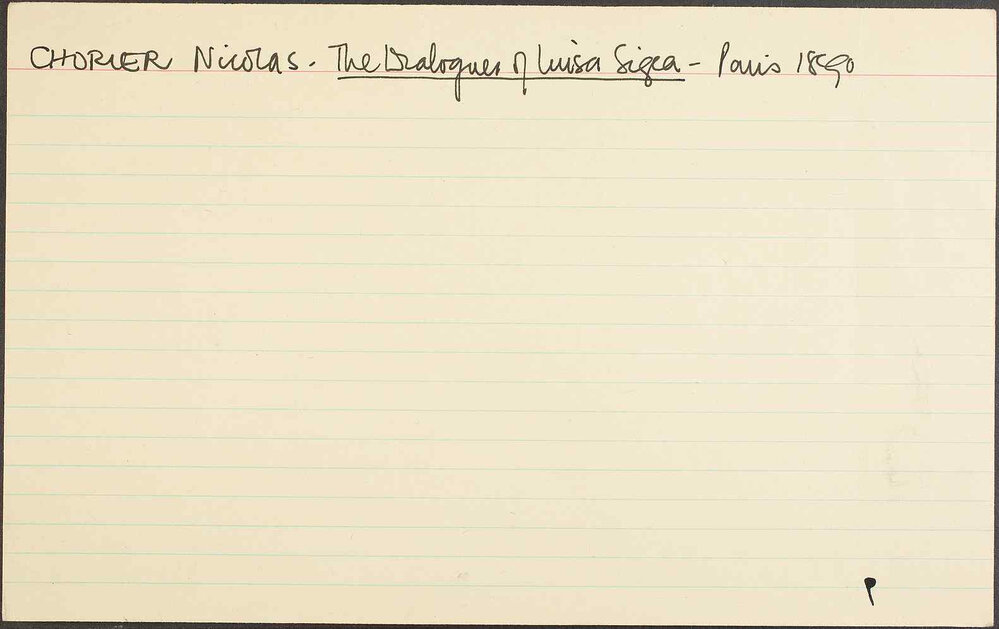 CHORIER Nicolas. The Dialogues of Luisa Sigea - Paris 1890
P